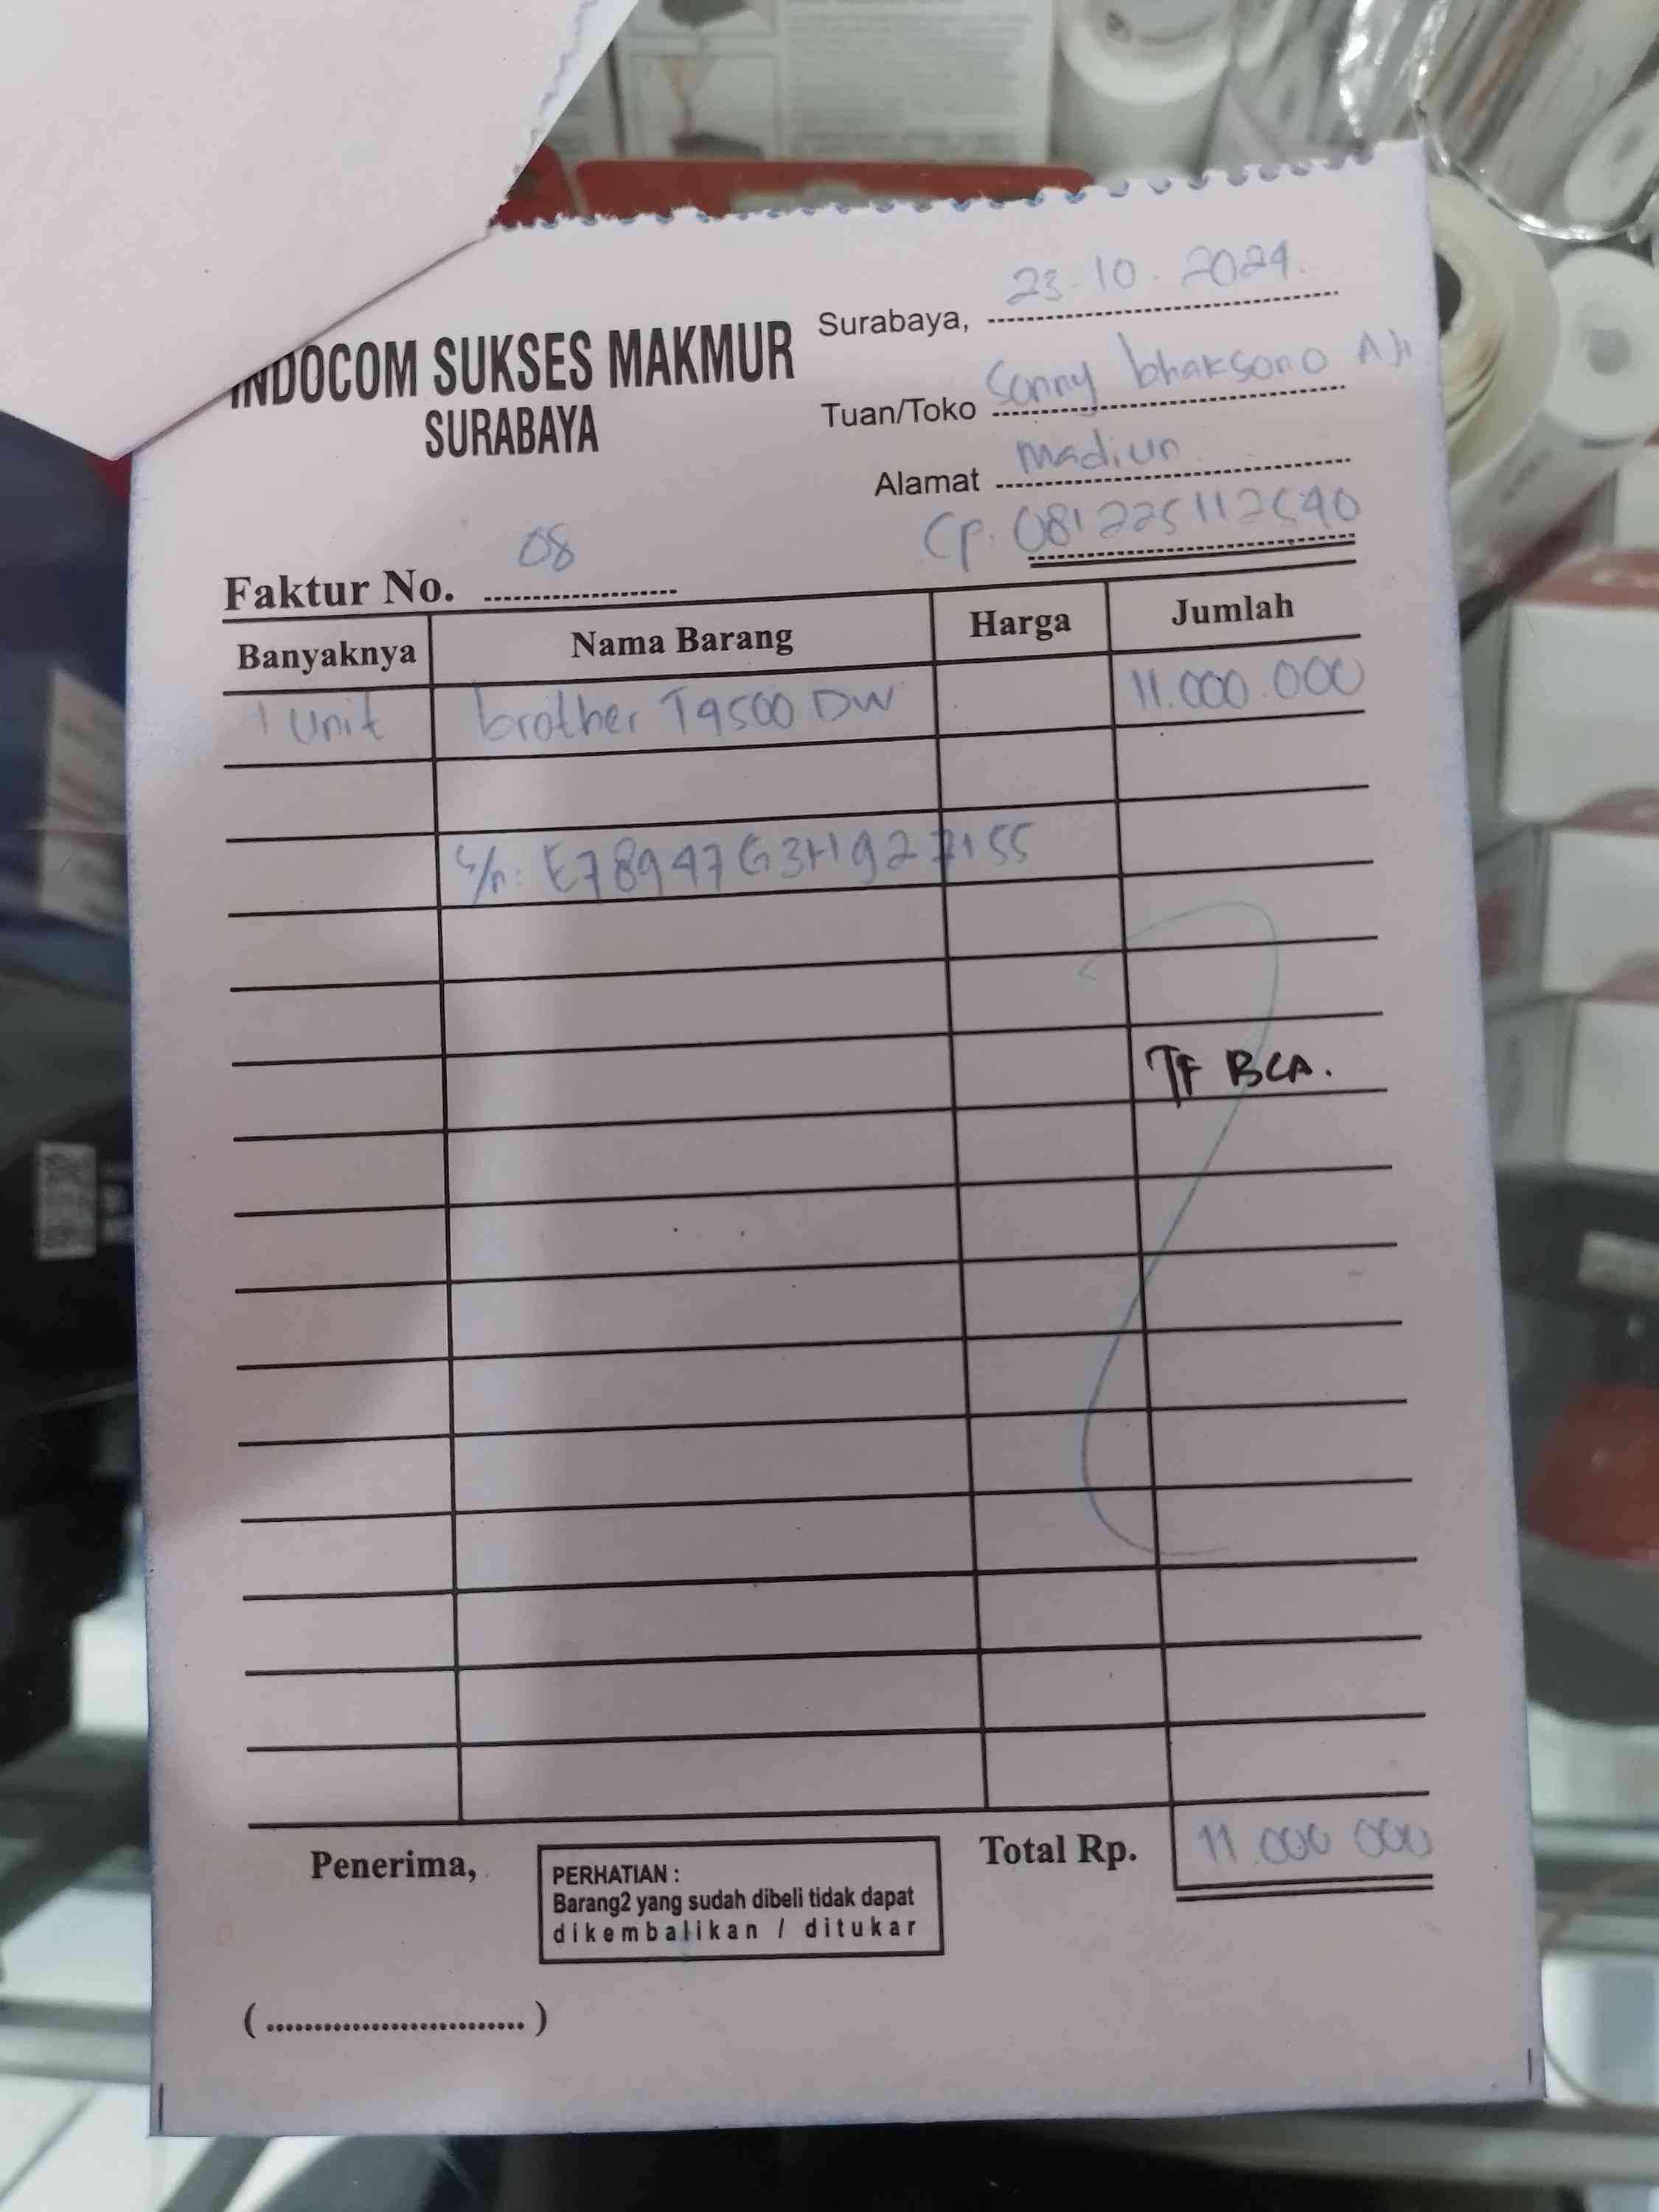 INDOCOM SUKSES MAKMUR
SURABAYA
Surabaya, 23-10-2024.
Tuan/Toko Sonny bhaksono Aji
Alamat Madiun
Cp. 081225112540
Faktur No. 08
Banyaknya Nama Barang Harga Jumlah
1 Unit brother T4500 DW 11.000.000
S/n: E78947G3H927155
TF BCA.
Penerima, Total Rp. 11.000 000
PERHATIAN :
Barang2 yang sudah dibeli tidak dapat
dikembalikan / ditukar
(............................)